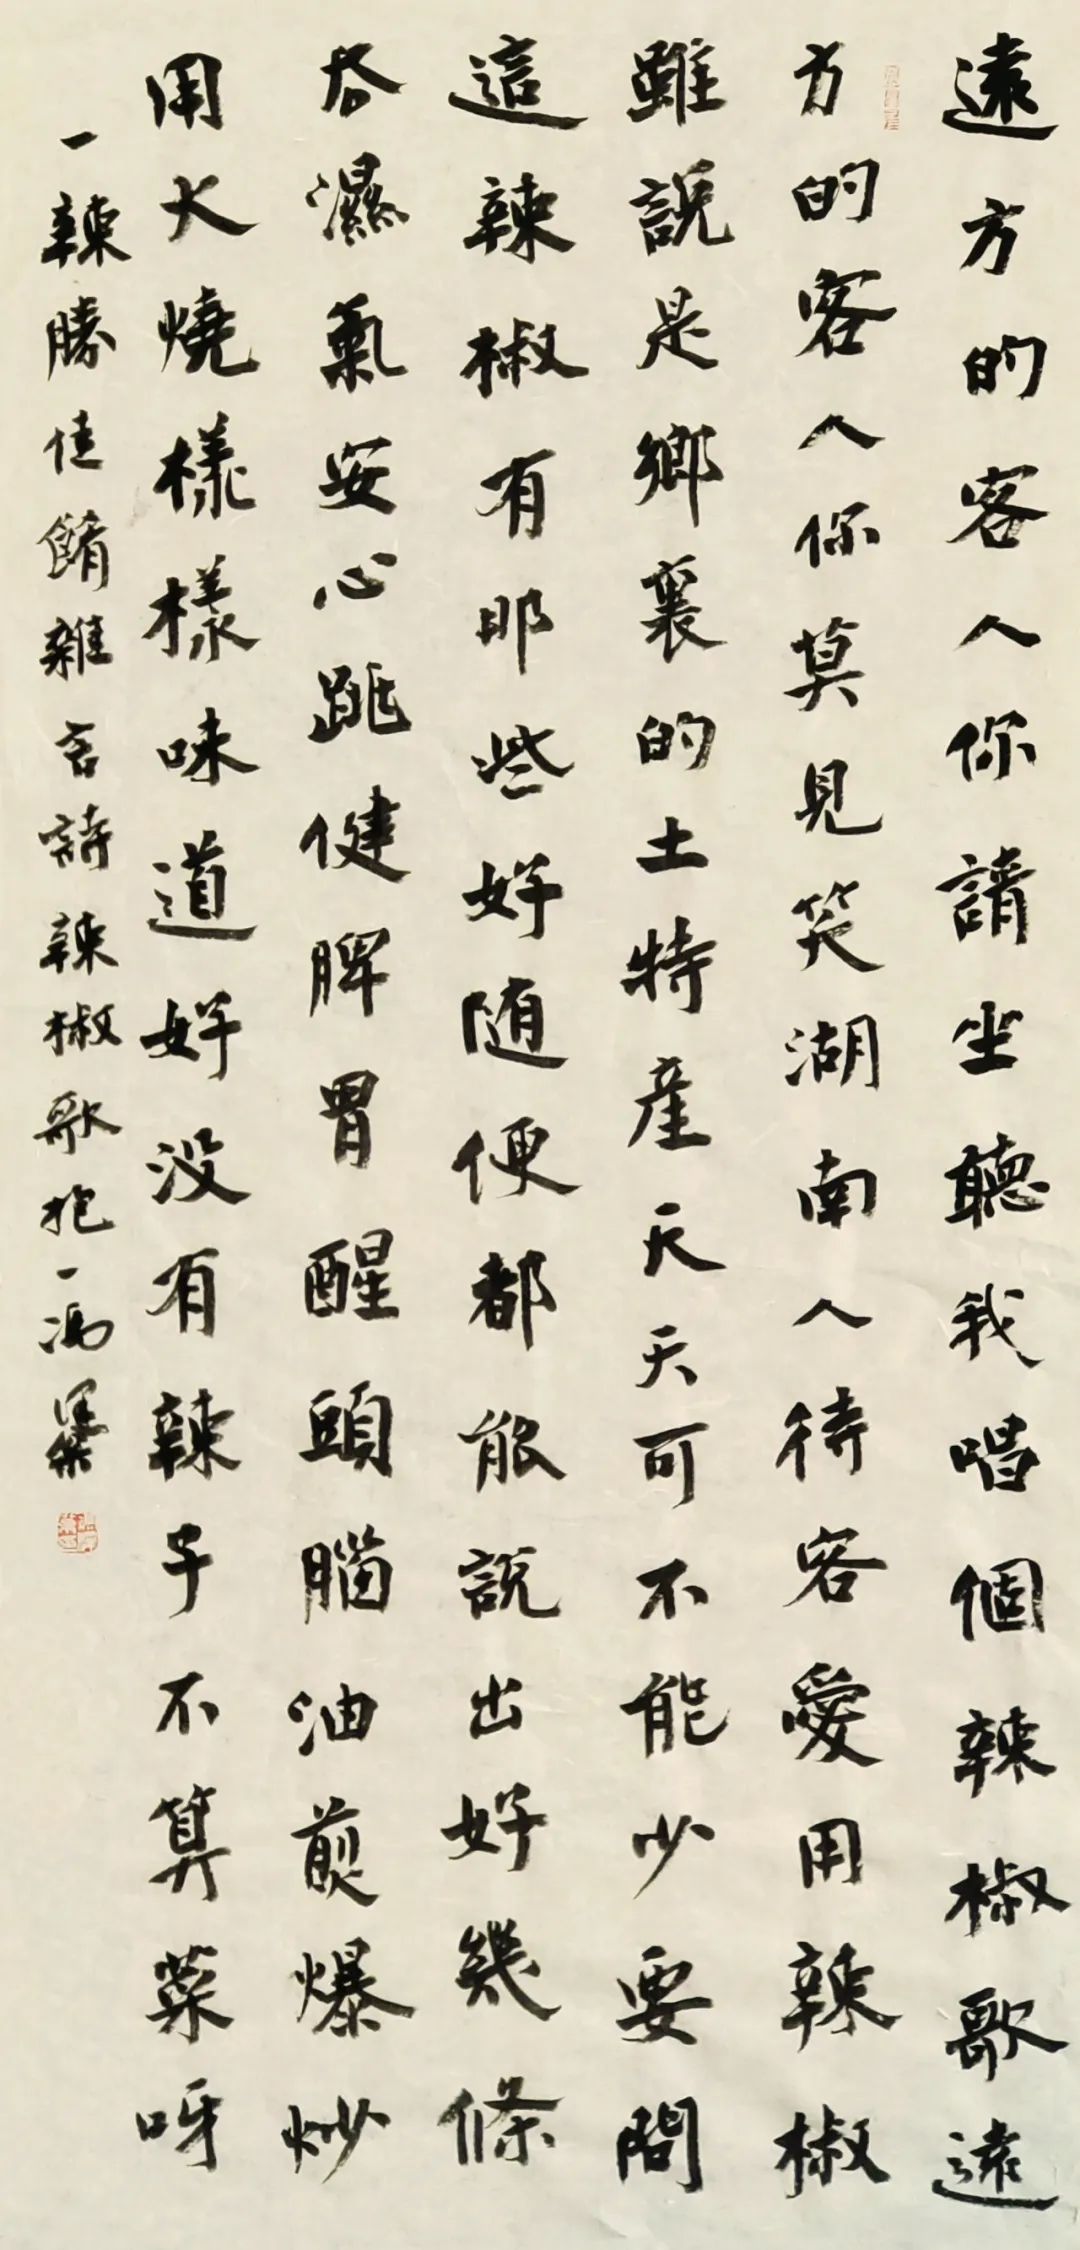 遠方的客人你請坐聽我唱個辣椒歌遠
方的客人你莫見笑湖南人待客愛用辣椒
雖說是鄉裏的土特產天天可不能少要問
這辣椒有那些好随便都能說出好幾條
去濕氣安心跳健脾胃醒頭腦油煎爆炒
用火燒樣樣味道好没有辣子不算菜呀
一辣勝佳餚雜言詩辣椒歌抱一馮